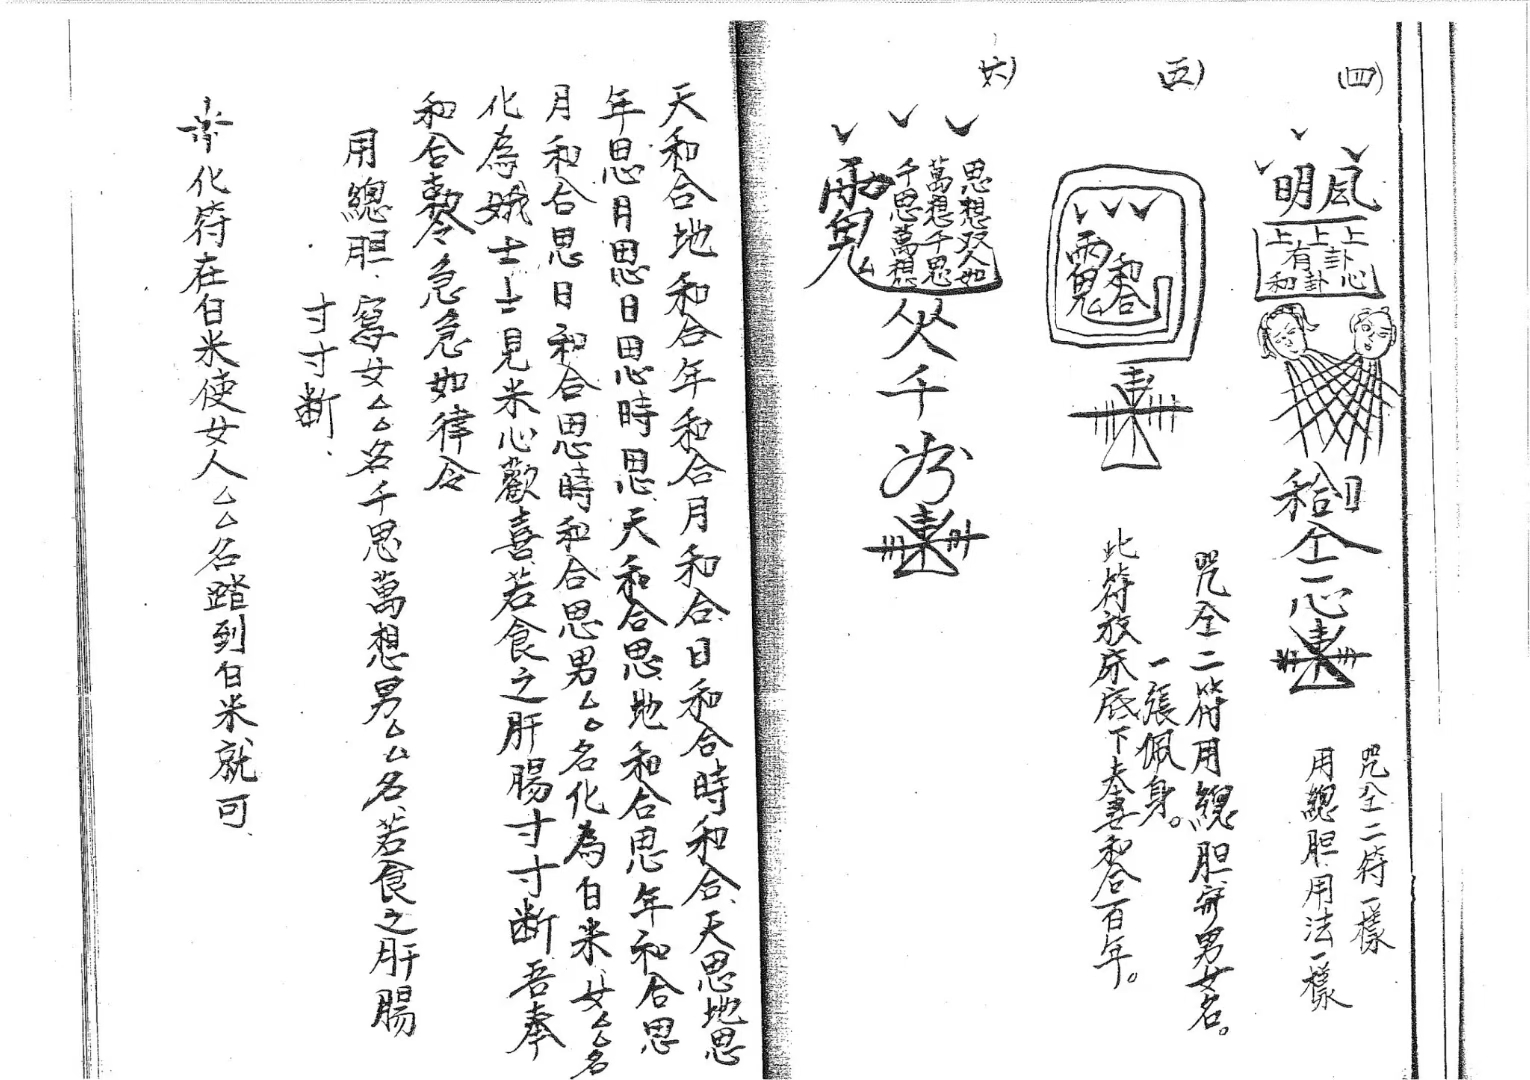 (四)
明風
上上上
有卦
和卦心
和合
全
心
咒全二符一樣
用總胆用法一樣
(五)
和合
咒全二符用總胆寫男女名。
一張佩身。
此符放床底下夫妻和合百年。
(六)
思想双人如
萬想千思
千思萬想
千
天和合地和合年和合月和合日和合時和合、天思地思
年思月思日思時思、天和合思地和合思年和合思
月和合思日和合思時和合思男厶厶名化為白米、女厶厶名
化為娥士士見米心歡喜、若食之肝腸寸寸斷吾奉
和合勅令急急如律令
用總胆、寫女厶厶名千思萬想男厶厶名、若食之肝腸
寸寸斷、
化符在白米使女人厶厶名踏到白米就可、